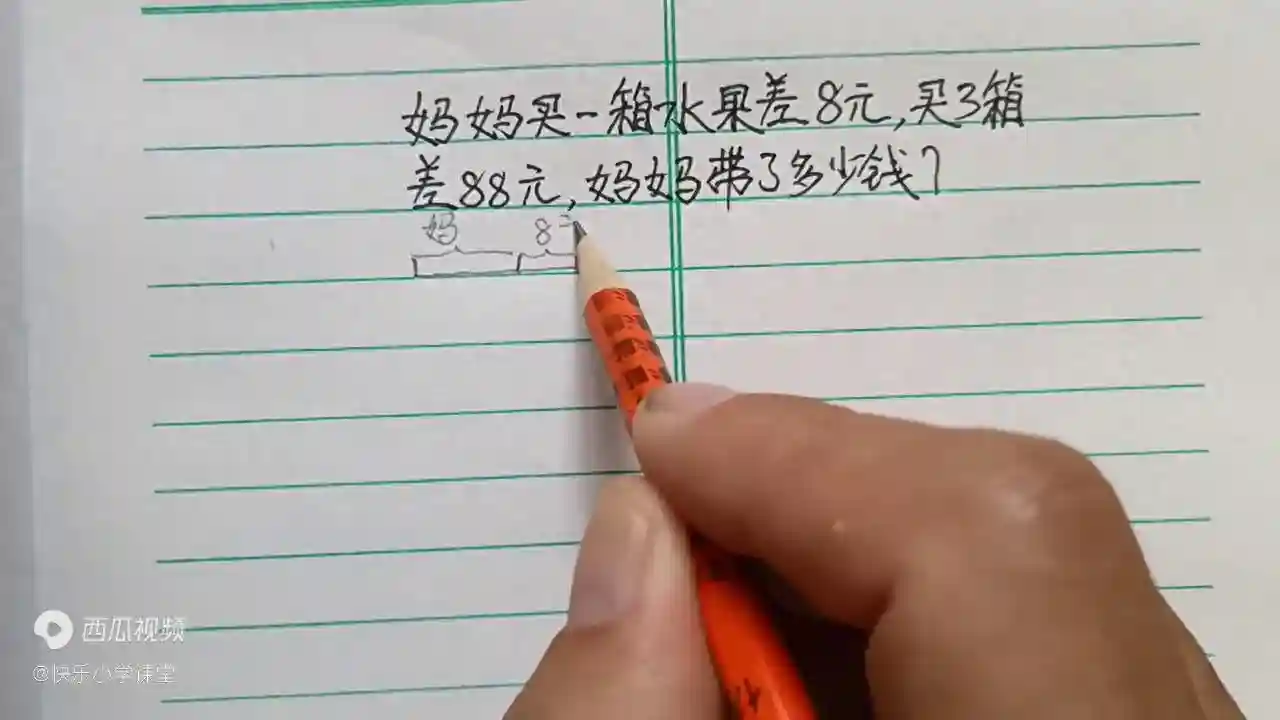 妈妈买一箱水果差8元,买3箱
差88元,妈妈带了多少钱?
妈 8
西瓜视频
@快乐小学课堂